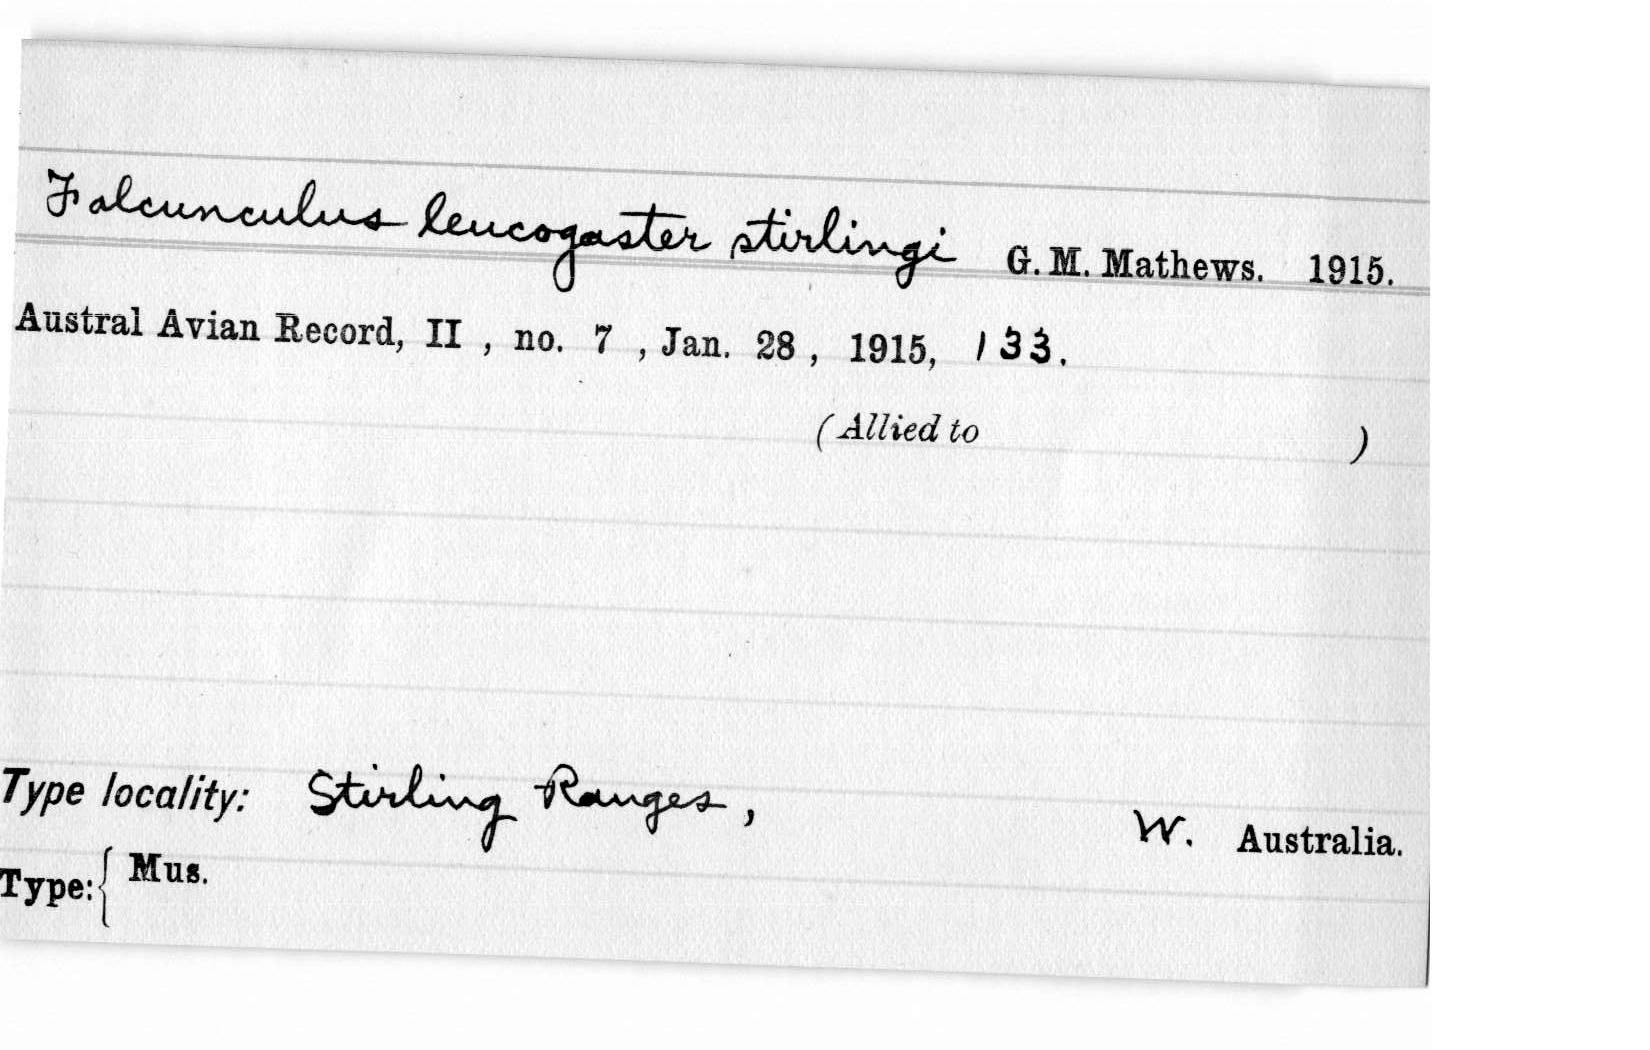 Falcunculus leucogaster stirlingi G. M. Mathews. 1915.
Austral Avian Record, II , no. 7 , Jan. 28 , 1915, 133.
(Allied to )
Type locality: Stirling Ranges, W. Australia.
Type: { Mus.